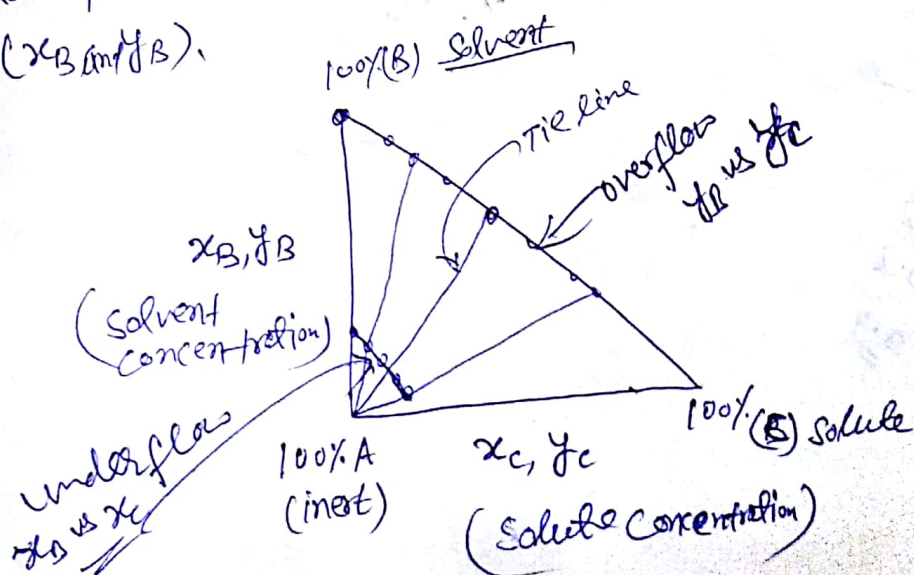 (xB and yB).
100%(B) Solvent
Tie line
overflow
yB vs yC
xB, yB
(Solvent
concentration)
underflow
xB vs xC
100% A
(inert)
xC, yC
(Solute Concentration)
100% solute